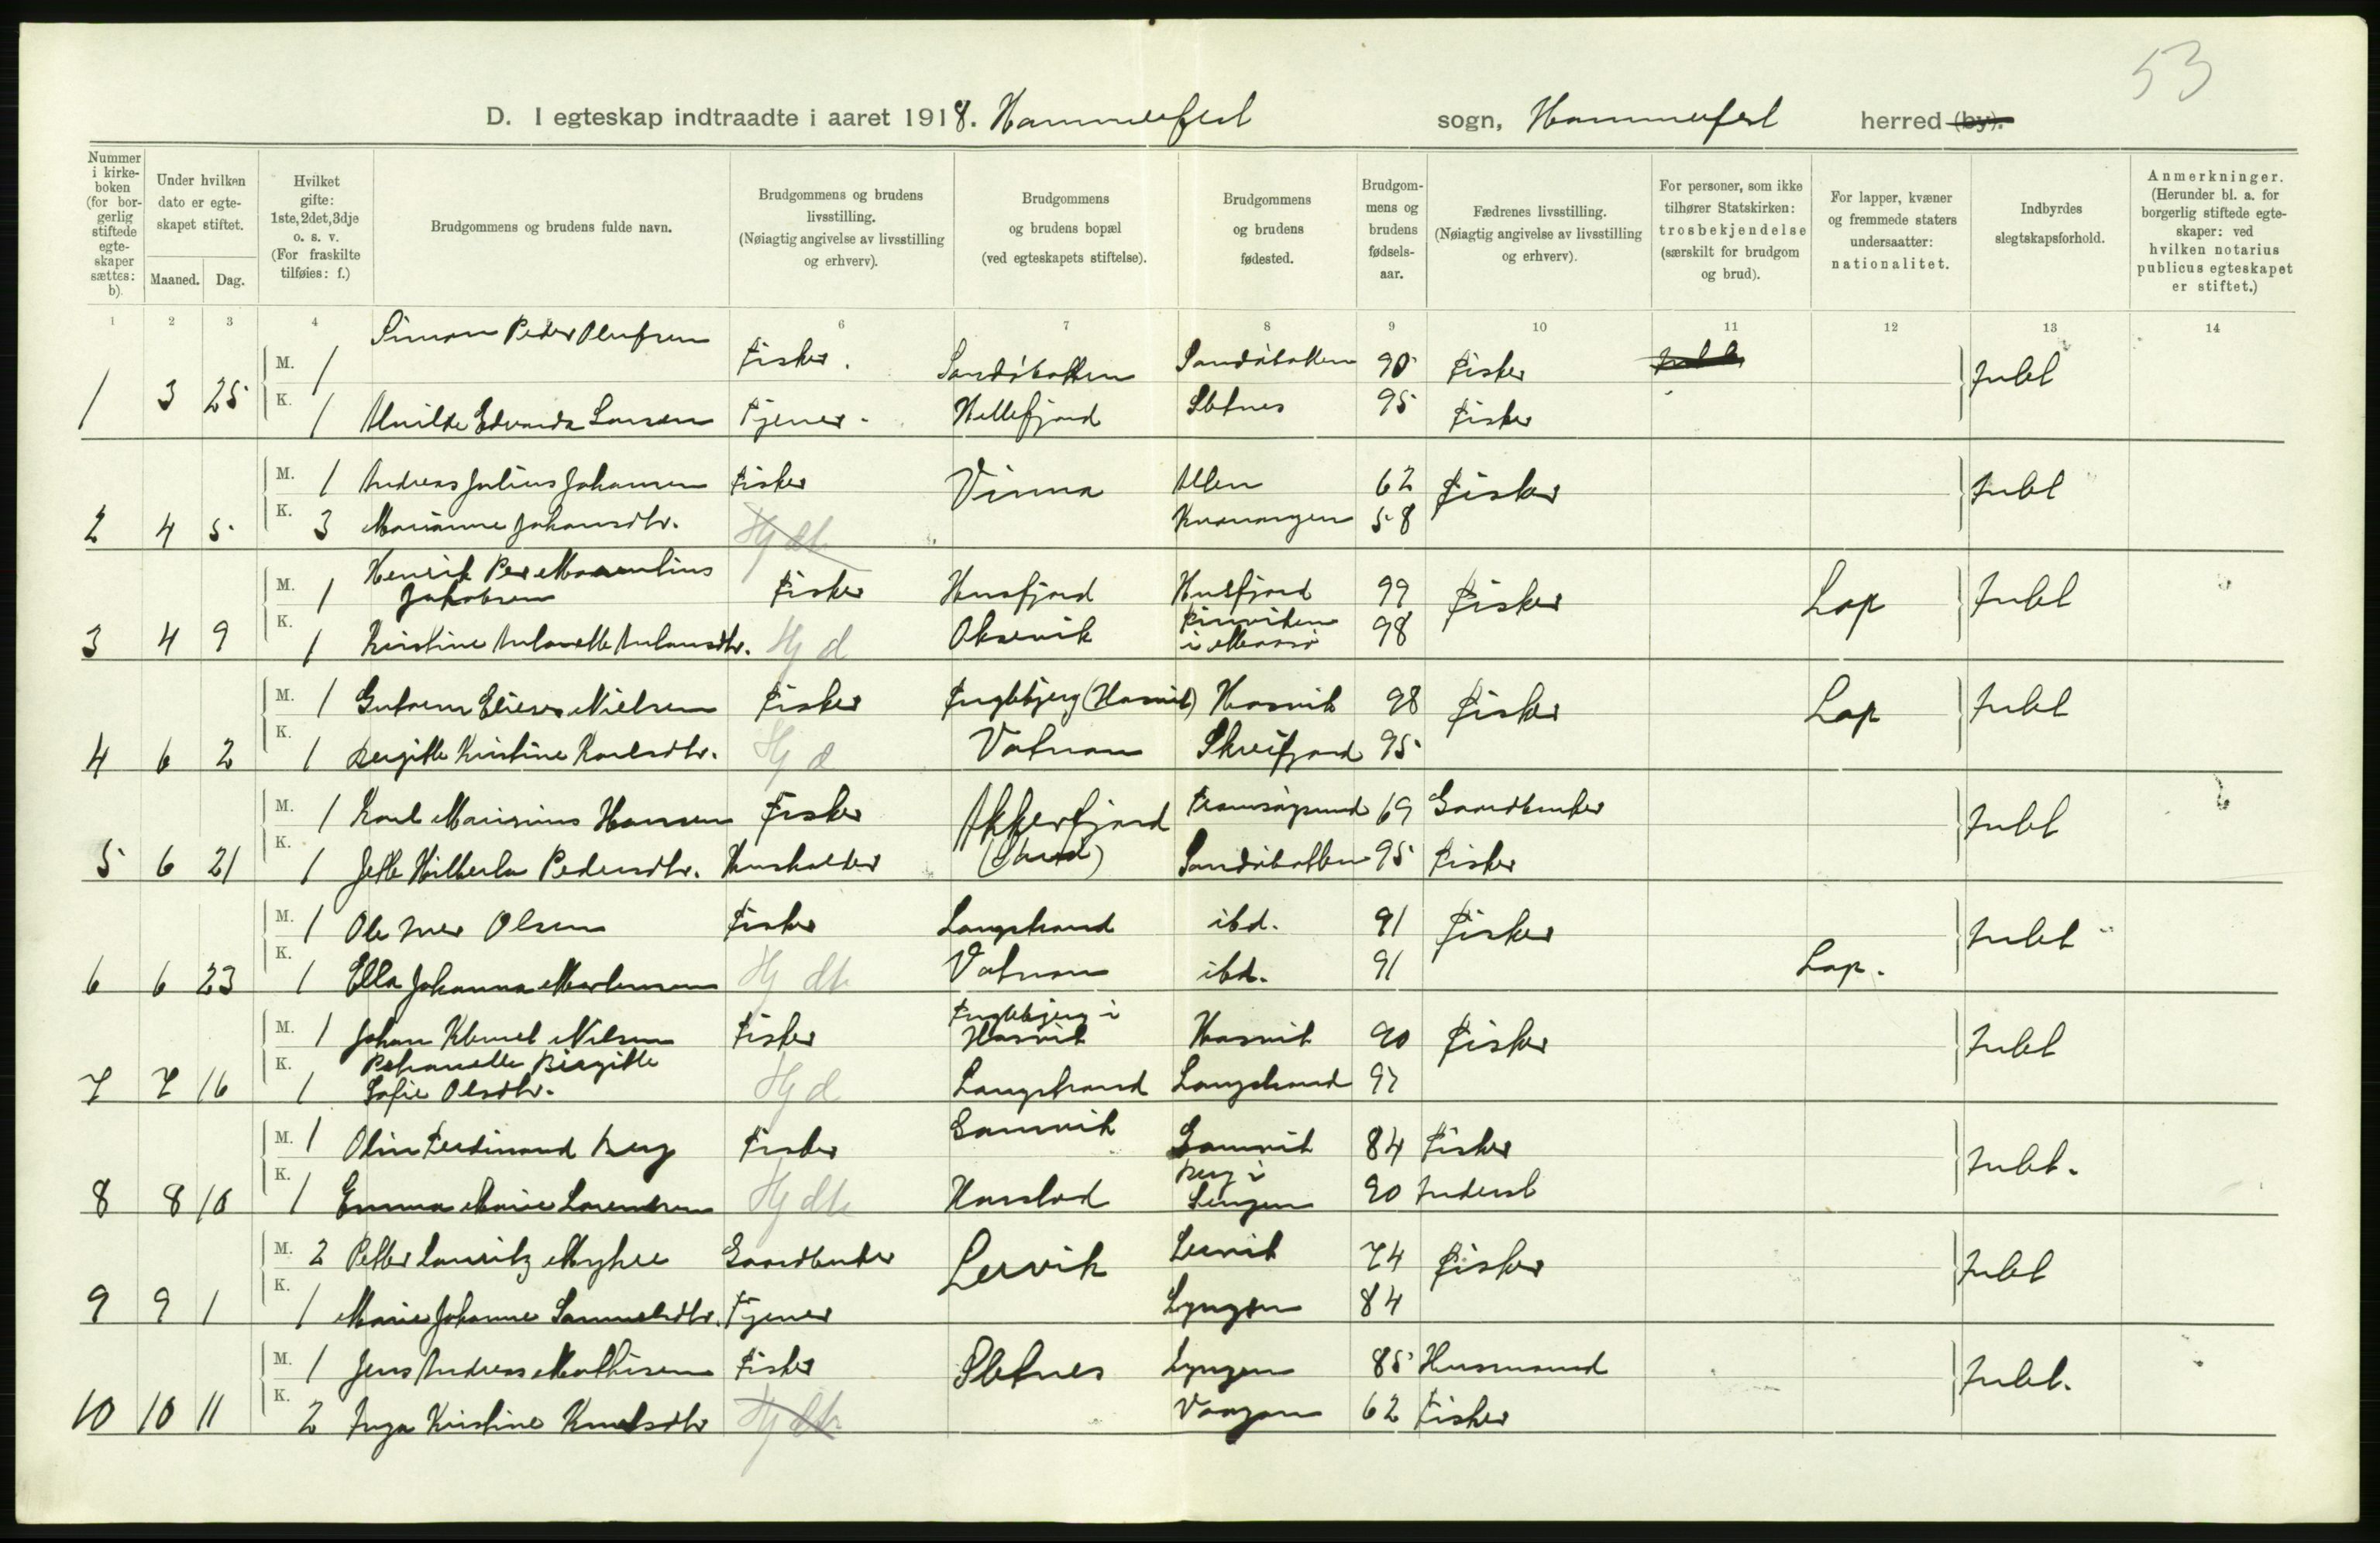 53
D. I egteskap indtraadte i aaret 1918. Hammerfest sogn, Hammerfest herred (by).
Nummer i kirkeboken (for borgerlig stiftede egteskaper sættes: b).
Under hvilken dato er egteskapet stiftet.
Maaned. Dag.
Hvilket gifte: 1ste, 2det, 3dje o. s. v. (For fraskilte tilføies: f.)
Brudgommens og brudens fulde navn.
Brudgommens og brudens livsstilling. (Nøiagtig angivelse av livsstilling og erhverv).
Brudgommens og brudens bopæl (ved egteskapets stiftelse).
Brudgommens og brudens fødested.
Brudgommens og brudens fødselsaar.
Fædrenes livsstilling. (Nøiagtig angivelse av livsstilling og erhverv).
For personer, som ikke tilhører Statskirken: trosbekjendelse (særskilt for brudgom og brud).
For lapper, kvæner og fremmede staters undersaatter: nationalitet.
Indbyrdes slegtskapsforhold.
Anmerkninger. (Herunder bl. a. for borgerlig stiftede egteskaper: ved hvilken notarius publicus egteskapet er stiftet.)
1 2 3 4 6 7 8 9 10 11 12 13 14
M. 1 Simon Peder Olufsen Fisker. Sandøbotten Sandøbotten 90 Fisker Intet
1 3 25 K. 1 Alvilde Edvarda Larsen Tjener. Hellefjord Sletnes 95 Fisker
M. 1 Andreas Julius Johansen Fisker Vinna Alen 62 Fisker Intet
2 4 5 K. 3 Marianne Johansdtr. Hj dt Kvænangen 58
M. 1 Henrik Per
Jakobsen Fisker Husfjord Husfjord 99 Fisker Lap Intet
3 4 9 K. 1 Kirstine Hj d Oksevik i Maasø 98
M. 1 Nielsen Fisker Fuglebjerg (Hasvik) Hasvik 98 Fisker Lap Intet
4 6 2 K. 1 Bergitte Kristine Karlsdtr. Hj d Vatnan Skreifjord 95
M. 1 Karl Marisius Hansen Fisker Akkerfjord 69 Gaardbruker Intet
5 6 21 K. 1 Jette Pedersdtr. Husholder Sandøbotten 95 Fisker
M. 1 Ole Iver Olsen Fisker Langstrand ibd. 91 Fisker Intet
6 6 23 K. 1 Ella Johanna Mortensen Hj dt Vatnan ibd. 91 Lap.
M. 1 Johan Klemet Nilsen Fisker Fuglebjerg i Hasvik Hasvik 90 Fisker Intet
7 7 16 K. 1 Birgitte
Sofie Olsdtr. Hj d Langstrand Langstrand 97
M. 1 Ferdinand Berg Fisker Gamvik Gamvik 84 Fisker Intet.
8 8 10 K. 1 Emma Marie Lorentsen Hj dt Berg i 90 Inderst
M. 2 Petter Lauritz Myhre Gaardbruker Lervik Lervik 74 Fisker Intet
9 9 1 K. 1 Marie Johanne Samuelsdtr. Tjener Lyngen 84
M. 1 Jens Andreas Mathisen Fisker Sletnes Lyngen 85 Husmand Intet.
10 10 11 K. 2 Inga Kristine Knudsdtr Hj dt Vaagan 62 Fisker